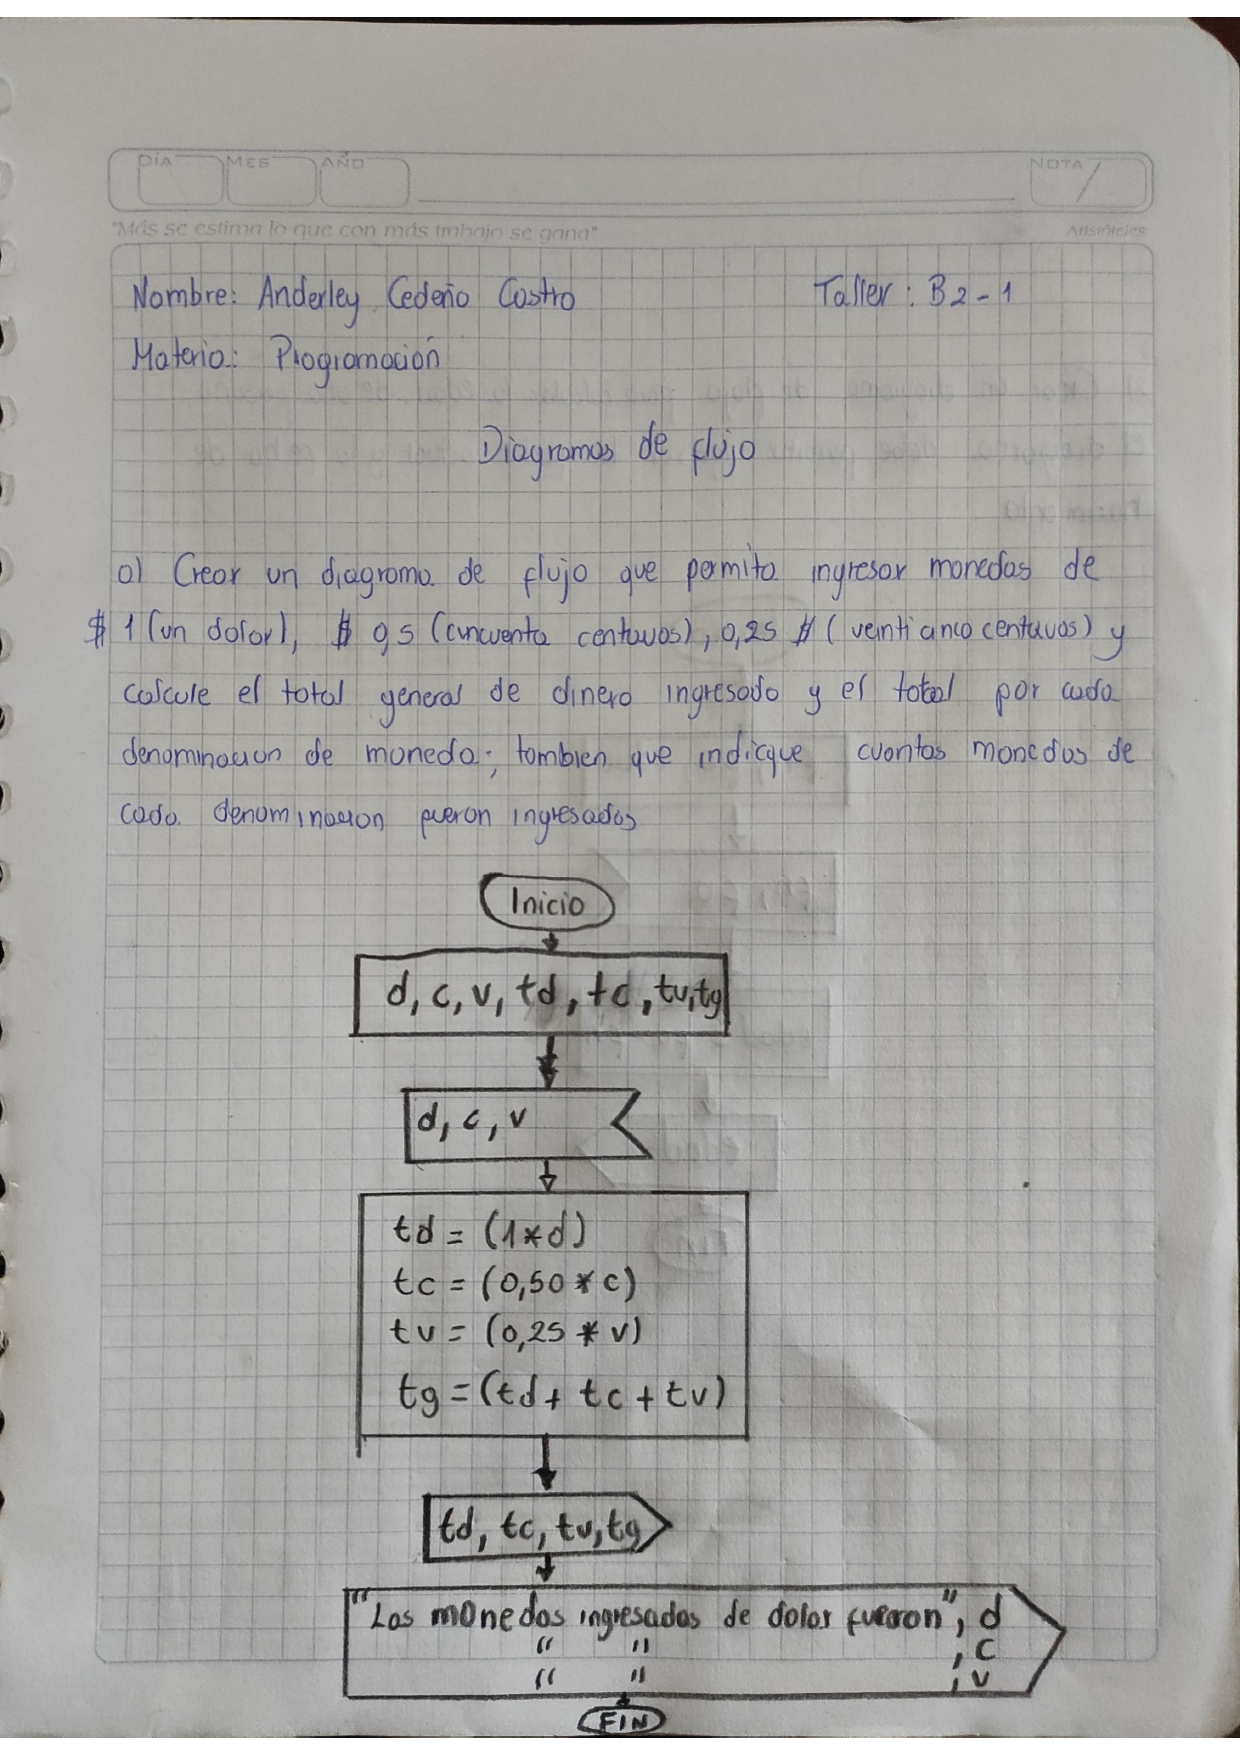 DÍA MES AÑO NOTA
"Más se estima lo que con más trabajo se gana" Aristóteles
Nombre: Anderley Cedeño Castro Taller: B2-1
Materia: Programación
Diagramas de flujo
a) Crear un diagrama de flujo que permita ingresar monedas de
$ 1 (un dolar), $ 0,5 (cincuenta centavos), 0,25 $ (veinticinco centavos) y
calcule el total general de dinero ingresado y el total por cada
denominacion de moneda; tambien que indicque cuantas monedas de
cada denominacion fueron ingresadas
Inicio
d, c, v, td, tc, tv, tg
d, c, v
td = (1*d)
tc = (0,50 * c)
tv = (0,25 * v)
tg = (td + tc + tv)
td, tc, tv, tg
"Las monedas ingresadas de dolar fueron", d
" " , c
" " , v
FIN